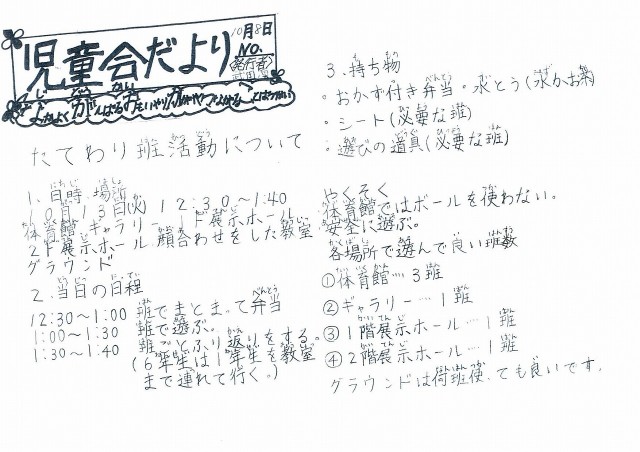 児童会だより
10月8日
NO.
発行者
たてわり班活動について
1.日時、場所
10月13日(火) 12:30~1:40
体育館、ギャラリー、1F展示ホール
2F展示ホール、顔合わせをした教室
グラウンド
2.当日の日程
12:30~1:00 班でまとまって弁当
1:00~1:30 班で遊ぶ。
1:30~1:40 班ごとふり返りをする。
(6年生は1年生を教室
まで連れて行く。)
3.持ち物
・おかず付き弁当・水とう(水かお茶)
・シート(必要な班)
・遊びの道具(必要な班)
やくそく
体育館ではボールを使わない。
安全に遊ぶ。
各場所で遊んで良い班数
①体育館…3班
②ギャラリー…1班
③1階展示ホール…1班
④2階展示ホール…1班
グラウンドは何班使っても良いです。